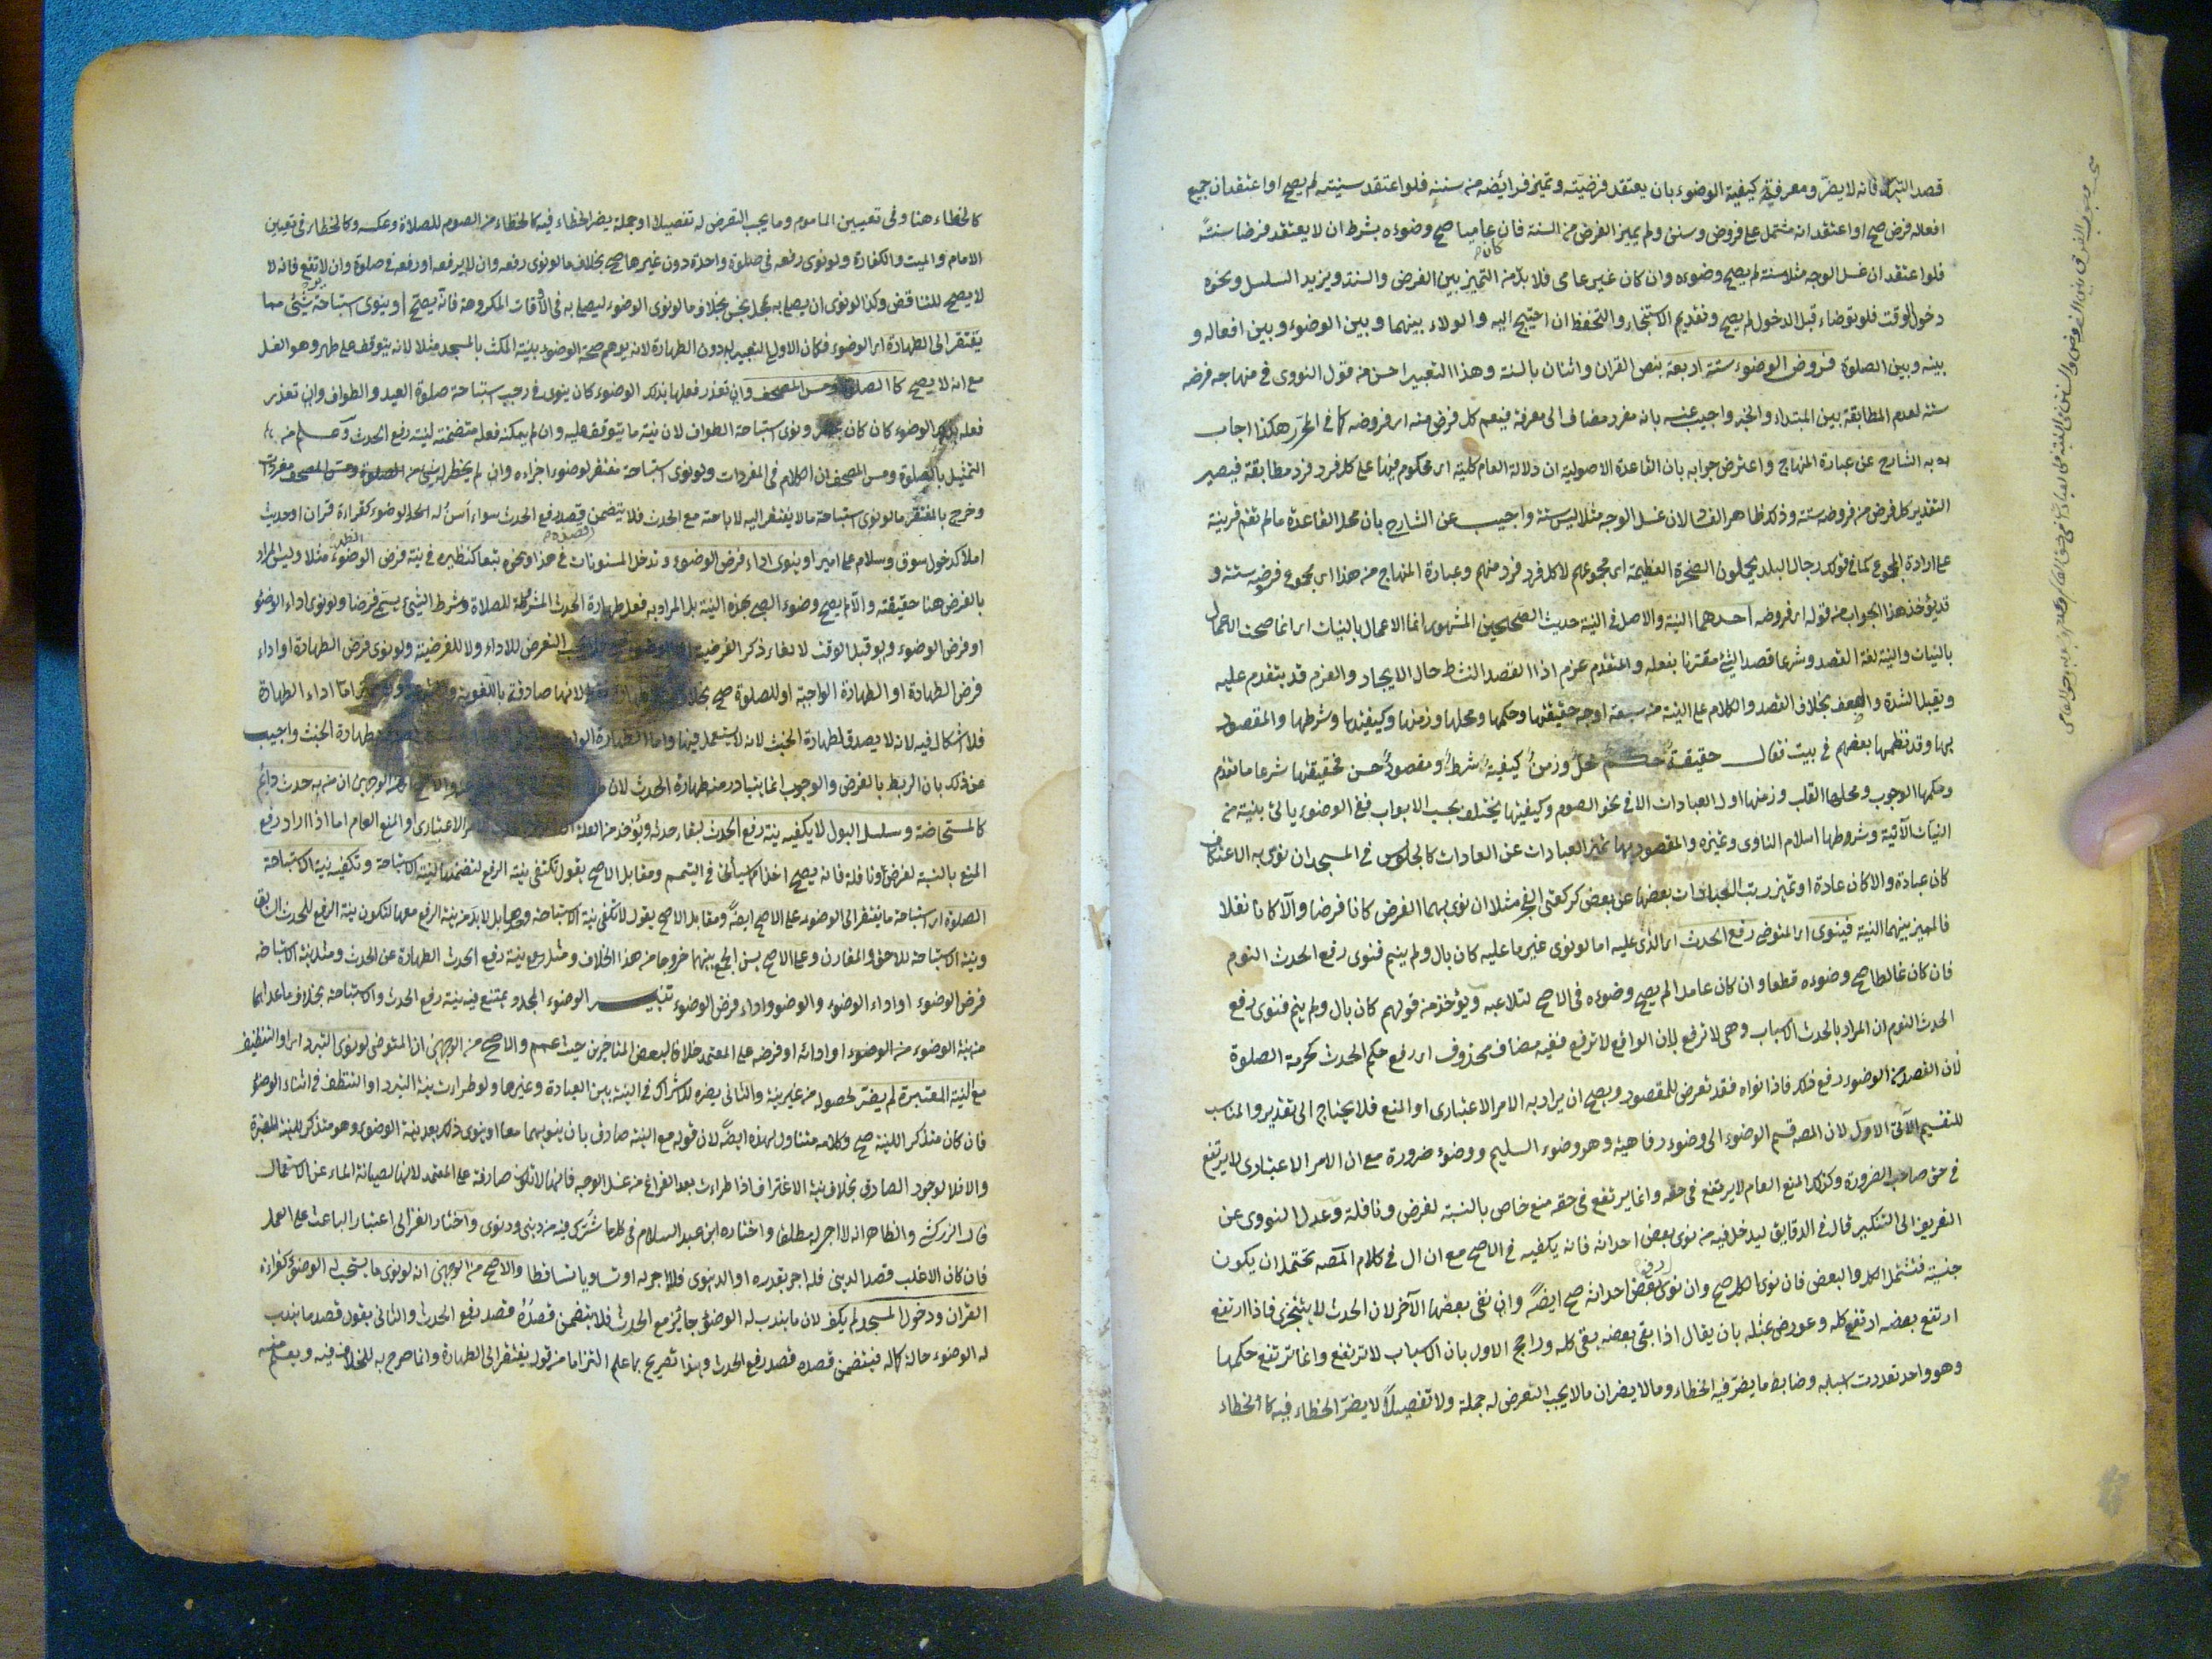 قصد التبرك فانه لا يضر ومعرفة كيفية الوضوء بان يعتقد فرضيته وتميز فرائضه من سننه فلو اعتقد سنيته لم يصح او اعتقد ان جميع
افعاله فرض صح او اعتقد انه مشتمل على فروض وسنن ولم يميز الفرض من السنة فان كان عاميا صح وضوءه بشرط ان لا يعتقد فرضا سنة
فلو اعتقد ان غسل الوجه مثلا سنة لم يصح وضوءه وان كان غير عامي فلا بد من التميز بين الفرض والسنة ويزيد السلس ونحوه
دخول الوقت فلو توضاء قبل الدخول لم يصح وتقديم الاستنجاء والتحفظ ان احتيج اليه والولاء بينهما وبين الوضوء وبين افعاله و
بينه وبين الصلوة فروض الوضوء ستة اربعة بنص القران واثنان بالسنة وهذا التعبير احسن من قول النووي في منهاجه فرضه
ستة لعدم المطابقة بين المبتداء والخبر واجيب عنه بانه مفرد مضاف الى معرفة فيعم كل فرض منه اى فروضه كما في المحرر هكذا اجاب
به الشارح عن عبارة المنهاج واعترض جوابه بان القاعدة الاصولية ان دلالة العام كلية اى محكوم فيها على كل فرد فرد مطابقة فيصير
التقدير كل فرض من فروضه ستة وذلك ظاهر الفساد لان غسل الوجه مثلا ليس ستة واجيب عن الشارح بان محل القاعدة ما لم تقم قرينة
على ارادة المجموع كما في قولك رجال البلد يحملون الصخرة العظيمة اى مجموعهم لا كل فرد فرد منهم وعبارة المنهاج من هذا اى مجموع فرضه ستة و
قد يؤخذ هذا الجواب من قوله اى فروضه احدهما النية والاصل في النية حديث الصحيحين المشهور انما الاعمال بالنيات اى انما صحت الاعمال
بالنيات والنية لغة القصد وشرعا قصد الشئ مقترنا بفعله والمتقدم عزم اذا القصد النشط حال الايجاد والعزم قد يتقدم عليه
ويقبل الشدة والضعف بخلاف القصد والكلام على النية من سبعة اوجه حقيقتها وحكمها ومحلها وزمنها وكيفيتها وشرطها والمقصود
بها وقد نظمها بعضهم في بيت فقال حقيقة حكم محل وزمن كيفية شرط ومقصود حسن فحقيقتها شرعا ما تقدم
وحكمها الوجوب ومحلها القلب وزمنها اول العبادات الا في نحو الصوم وكيفيتها يختلف بحسب الابواب ففي الوضوء ياتي بنية من
النيات الآتية وشروطها اسلام الناوى وتميزه والمقصود بها تميز العبادات عن العادات كالجلوس في المسجد ان نوى به الاعتكاف
كان عبادة والا كان عادة او تميز رتب العبادات بعضها عن بعض كركعتي الفجر مثلا ان نوى بهما الفرض كانا فرضا والا كانا نفلا
فالمميز بينهما النية فينوى اى المتوضي رفع الحدث اى الذى عليه اما لو نوى غير ما عليه كان بال ولم ينم فنوى رفع الحدث النوم
فان كان غالطا صح وضوءه قطعا وان كان عامدا لم يصح وضوءه في الاصح لتلاعبه ويؤخذ من قولهم كان بال ولم ينم فنوى رفع
الحدث النوم ان المراد بالحدث الاسباب وهى لا ترفع لان الواقع لا ترفع ففيه مضاف محذوف اى رفع حكم الحدث كحرمة الصلوة
لان القصد من الوضوء رفع ذلك فاذا نواه فقد تعرض للمقصود ويصح ان يراد به الامر الاعتبارى او المنع فلا يحتاج الى تقدير والمناسب
للتقسيم الآتي الاول لان المصه قسم الوضوء الى وضوء رفاهية وهو وضوء السليم ووضوء ضرورة مع ان الامر الاعتبارى لا يرتفع
في حق صاحب الضرورة وكذلك المنع العام لا يرتفع في حقه وانما يرتفع في حقه منع خاص بالنسبة لفرض ونافلة وعدل النووى عن
التعريف الى التنكير قال في الدقايق ليدخل فيه من نوى بعض احداثه فانه يكفيه في الاصح مع ان ال في كلام المصه تحتمل ان يكون
جنسية فتشمل الكل والبعض فان نوى الكل صح وان نوى رفع بعض احداثه صح ايضه وان نفى بعضها الآخر لان الحدث لا يتجزى فاذا ارتفع
ارتفع بعضه ارتفع كله وعورض بمثله بان يقال اذا بقى بعضه بقى كله وراجح الاول بان الاسباب لا ترتفع وانما ترتفع حكمها
وهو واحد تعددت اسبابه وضابط ما يضر فيه الخطاء وما لا يضر ان ما لا يجب التعرض له جملة ولا تفصيلا لا يضر الخطاء فيه كالخطاء
كالخطاء هنا وفي تعيين الماموم وما يجب التعرض له تفصيلا او جملة يضر الخطاء فيه كالخطاء من الصوم للصلاة وعكسه وكالخطاء في تعيين
الامام والميت والكفارة ولو نوى رفعه في صلوة واحدة دون غيرها صح بخلاف ما لو نوى رفعه وان لا يرفعه او رفعه في صلوة وان لا ترفع فانه لا
لا يصح للتناقض وكذا لو نوى ان يصلى به بمحل نجس بخلاف ما لو نوى الوضوء ليصلى به في الاوقات المكروهة فانه يصح او ينوى استباحة شئ مما
يفتقر الى الطهارة اى الوضوء فكان الاولى التعبير به دون الطهارة لانه يوهم صحة الوضوء بنية المكث بالمسجد مثلا لانه يتوقف على طهر وهو الغسل
مع انه لا يصح كالصلوة ومس المصحف وان تعذر فعلها بذلك الوضوء كان ينوى في رجب استباحة صلوة العيد والطواف وان تعذر
فعله الوضوء كان كان ونوى استباحة الطواف لان نية ما يتوقف عليه وان لم يمكنه فعله متضمنة لنية رفع الحدث وعلم من
التمثيل بالصلوة ومس المصحف ان الكلام في المفردات ولو نوى استباحة مفتقر لوضوء اجزاءه وان لم يخطر له شئ من الصلوة ومس المصحف مفردات
وخرج بالمفتقر ما لو نوى استباحة ما لا يفتقر اليه لاباحته مع الحدث فلا يتضمن قصده رفع الحدث سواء أسن له الوضوء كقراءة قران او حديث
ام لا كدخول سوق وسلام على امير او ينوى اداء فرض الوضوء وتدخل المسنونات في هذا ونحوه تبعا كنظيره في نية فرض الوضوء مثلا وليس المراد
بالفرض هنا حقيقته والا لم يصح وضوء الصبى بهذه النية بل المراد به فعل طهارة الحدث المشترطة للصلاة وشرط الشئ يسمى فرضا ولو نوى اداء الوضوء
او فرض الوضوء ولو قبل الوقت لالغاء ذكر الفرضية التعرض للاداء ولا للفرضية ولو نوى فرض الطهارة او اداء
فرض الطهارة او الطهارة الواجبة او للصلوة صح بخلاف لانها صادقة باللغوية اما اداء الطهارة
فلا اشكال فيه لانه لا يصدق لطهارة الخبث لانه لا يستعمل فيها واما الطهارة بطهارة الخبث واجيب
عن ذلك بان الربط بالفرض والوجوب انما يتبادر منه طهارة الحدث لان الوجهين ان من به حدث دائم
كالمستحاضة وسلس البول لا يكفيه نية رفع الحدث لبقاء حدثه ويؤخذ من العلة الاعتبارى والمنع العام اما اذا اراد رفع
المنع بالنسبة لفرض ونافلة فانه يصح اخذا مما سيأتى في التيمم ومقابل الاصح يقول تكتفى بنية الرفع لتضمنها لنية الاستباحة وتكفيه نية الاستباحة
الصلوة اى استباحة ما يفتقر الى الوضوء على الاصح ايضا ومقابل الاصح يقول لا تكفي نية الاستباحة وحدها بل لا بد من نية الرفع معها لتكون نية الرفع للحدث السابق
ونية الاستباحة للاحق والمقارن وعلى الاصح يسن الجمع بينهما خروجا من هذا الخلاف ومثل رفع نية رفع الحدث الطهارة عن الحدث ومثل نية الاستباحة
فرض الوضوء او اداء الوضوء والوضوء واداء فرض الوضوء تنبيه الوضوء المجدد يمتنع فيه نية رفع الحدث والاستباحة بخلاف ما عداهما
من نية الوضوء من الوضوء او ادائه او فرضه على المعتمد خلافا لبعض المتاخرين حيث عمم والاصح من الوجهين ان المتوضى لو نوى التبرد او التنظيف
مع النية المعتبرة لم يضر لحصوله من غير نية والثاني يضره للاشراك في النية بين العبادة وغيرها ولو طرات نية التبرد او التنظف في اثناء الوضوء
فان كان متذكرا للنية صح وكلامه متناول لهذه ايضا لان قوله مع النية صادق بان ينويهما معا او ينوى ذلك بعد نية الوضوء وهو متذكر للنية المعتبرة
والا فلا لوجود الصادف بخلاف نية الاغتراف اذا طراءت بعد الفراغ من غسل الوجه فانها لا تكون صارفة على المعتمد لانها لصيانة الماء عن الاستعمال
قال الزركشي والظاهر انه لا اجر له مطلقا واختاره ابن عبد السلام في كلما شرك فيه من ديني ودنوى واختار الغزالى اعتبار الباعث على العمل
فان كان الاغلب قصد الديني فله اجر بقدره او الدنيوى فلا اجر له او تساويا تساقطا والاصح من الوجهين انه لو نوى ما يستحب له الوضوء كقراءة
القران ودخول المسجد لم يكف لان ما يندب له الوضوء جائز مع الحدث فلا يتضمن قصده قصد رفع الحدث والثاني يقول قصد ما يندب
له الوضوء حالة كماله فيتضمن قصده قصد رفع الحدث وهذا تصريح بما علم التزاما من قوله يفتقر الى الطهارة وانما صرح به للخلاف فيه ويعلم منه